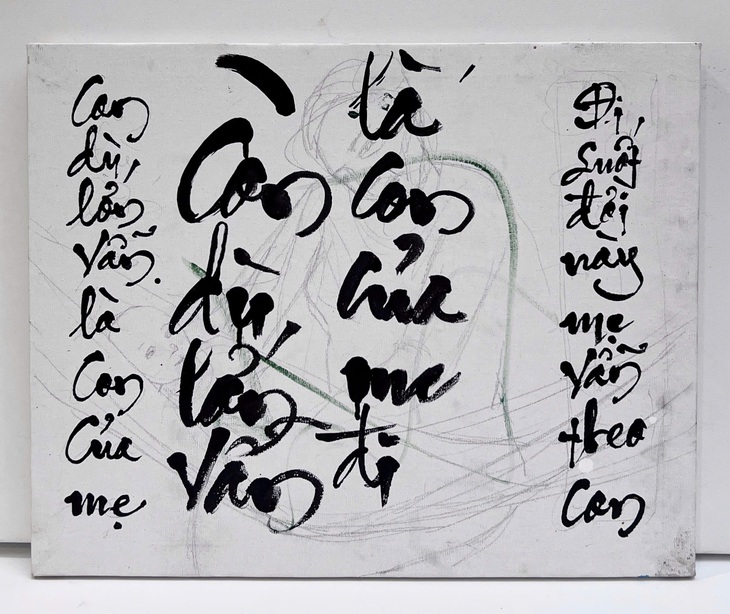 Con dù lớn vẫn là con của mẹ
Con dù lớn vẫn
là con của mẹ đi
Đi suốt đời này mẹ vẫn theo con